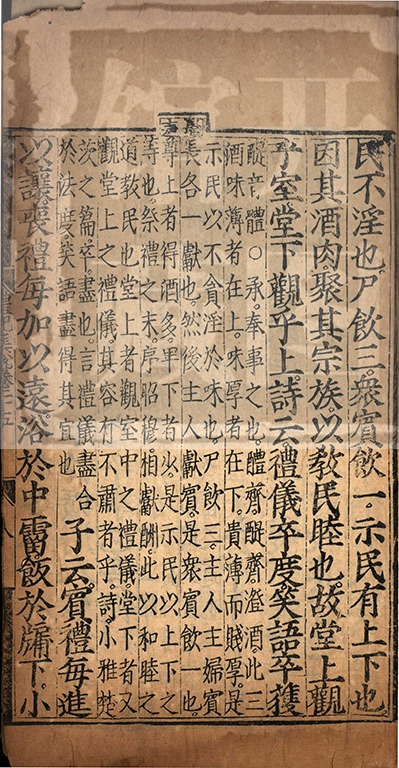 民不淫也。尸飲三。衆賓飲一。示民有上下也
因其酒肉。聚其宗族。以教民睦也。故堂上觀
乎室。堂下觀乎上。詩云禮儀卒度。笑語卒獲
醍音體○承。奉事之也。醴齊醍齊澄酒。此三
酒味薄者在上。味厚者在下。貴薄而賤厚。是
示民以不貪淫於味也。尸飲三。主人主婦賓
長各一獻也。然後主人獻賓。是衆賓飲一也。
尊上者得酒多。卑下者少。是示民以上下之
等也。祭禮之末。序昭穆。相獻酬。此以和睦之
道教民也。堂上者觀室中之禮儀。堂下者又
觀堂上之禮儀。其容有不肅者乎。詩。小雅楚
茨之篇。卒。盡也。言禮儀盡合
於法度。笑語盡得其宜也
子云。賓禮每進
以讓。喪禮每加以遠。浴於中霤。飯於牖下。小